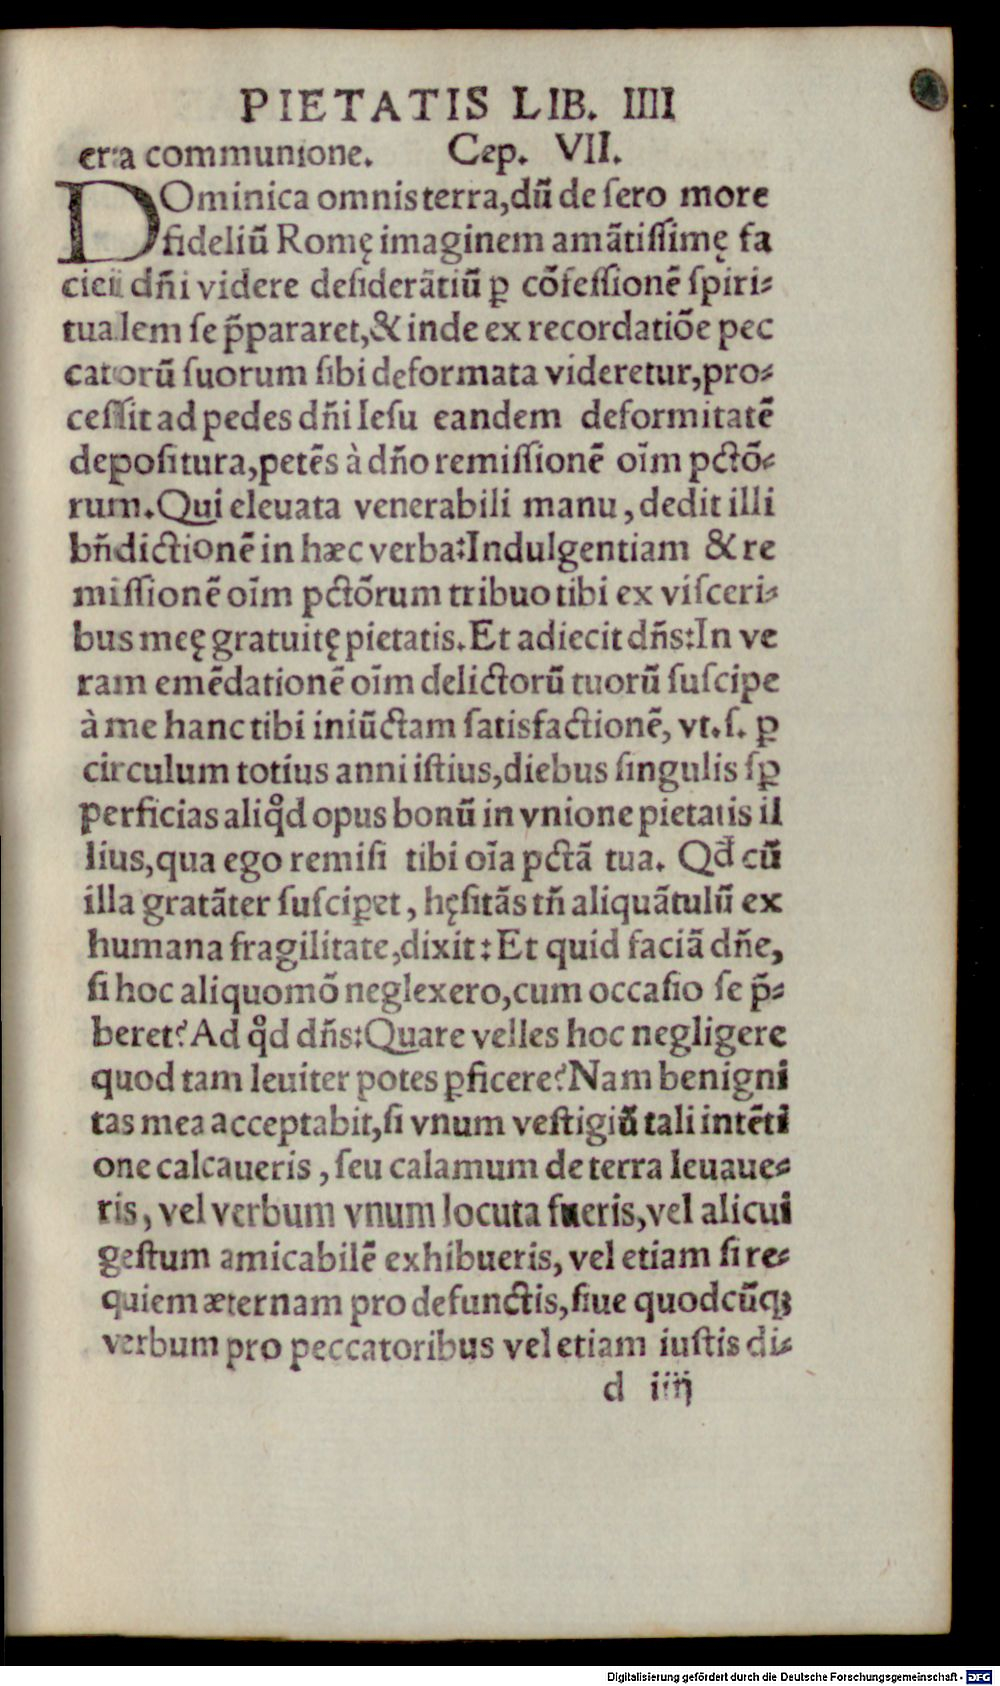 PIETATIS LIB. IIII
cra communione. Cep. VII.
DOminica omnis terra, dũ de ſero more
fideliũ Romę imaginem amãtiſſimę fa
ciei dñi videre deſiderãtiũ ꝑ cõfeſſionẽ ſpiri⸗
tualem ſe p̃pararet, & inde ex recordatiõe pec
catorũ ſuorum ſibi deformata videretur, pro⸗
ceſſit ad pedes dñi Ieſu eandem deformitatẽ
depoſitura, petẽs à dño remiſſionẽ oĩm pctõ⸗
rum. Qui eleuata venerabili manu, dedit illi
bñdictionẽ in hæc verba: Indulgentiam & re
miſſionẽ oĩm pctõrum tribuo tibi ex viſceri⸗
bus meę gratuitę pietatis. Et adiecit dñs: In ve
ram emẽdationẽ oĩm delictorũ tuorũ ſuſcipe
à me hanc tibi iniũctam ſatisfactionẽ, vt. ſ. ꝑ
circulum totius anni iſtius, diebus ſingulis ſꝑ
perficias aliqͦd opus bonũ in vnione pietatis il
lius, qua ego remiſi tibi oĩa pctã tua. Qd̃ cũ
illa gratãter ſuſciꝑet, hęſitãs tñ aliquãtulũ ex
humana fragilitate, dixit: Et quid faciã dñe,
ſi hoc aliquomõ neglexero, cum occaſio ſe p̃⸗
beret? Ad qͦd dñs: Quare velles hoc negligere
quod tam leuiter potes ꝑficere? Nam benigni
tas mea acceptabit, ſi vnum veſtigiũ tali intẽti
one calcaueris, ſeu calamum de terra leuaue⸗
ris, vel verbum vnum locuta fueris, vel alicui
geſtum amicabilẽ exhibueris, vel etiam ſi re⸗
quiem æternam pro defunctis, ſiue quodcũqꝫ
verbum pro peccatoribus vel etiam iuſtis di⸗
d iiij
Digitalisierung gefördert durch die Deutsche Forschungsgemeinschaft - DFG